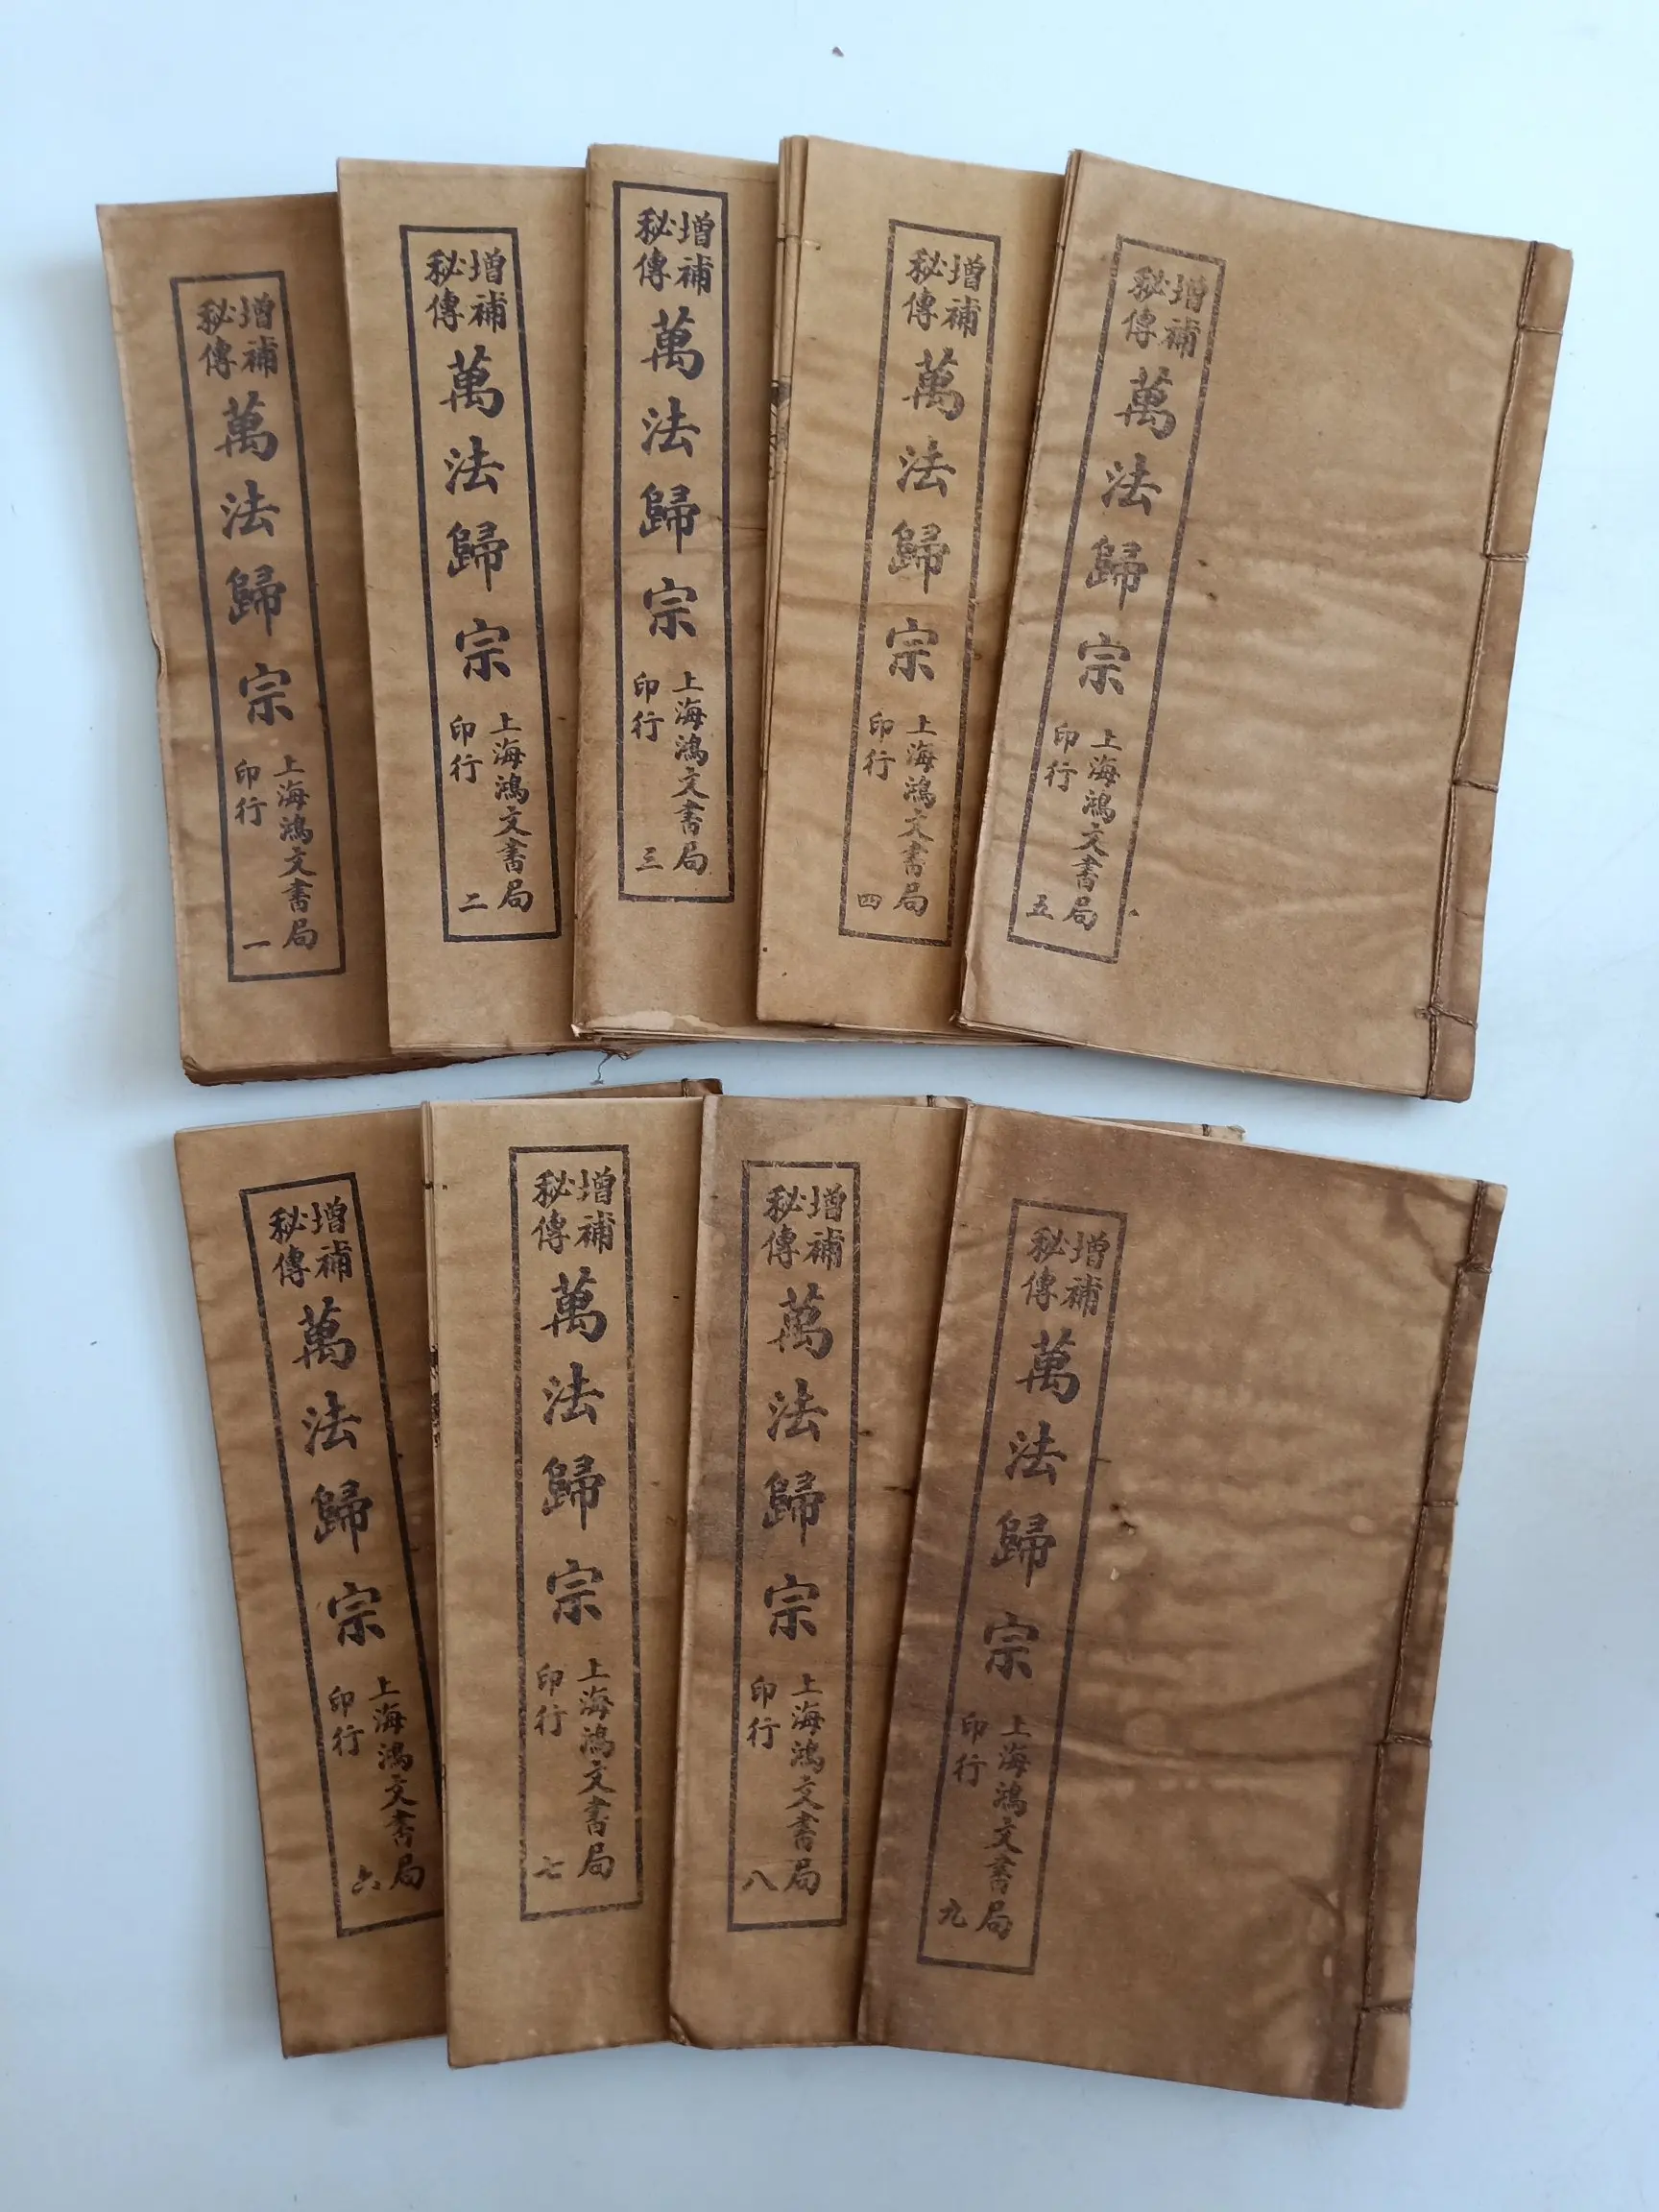 增補
秘傳
萬法歸宗
上海鴻文書局
印行
一
增補
秘傳
萬法歸宗
上海鴻文書局
印行
二
增補
秘傳
萬法歸宗
上海鴻文書局
印行
三
增補
秘傳
萬法歸宗
上海鴻文書局
印行
四
增補
秘傳
萬法歸宗
上海鴻文書局
印行
五
增補
秘傳
萬法歸宗
上海鴻文書局
印行
六
增補
秘傳
萬法歸宗
上海鴻文書局
印行
七
增補
秘傳
萬法歸宗
上海鴻文書局
印行
八
增補
秘傳
萬法歸宗
上海鴻文書局
印行
九